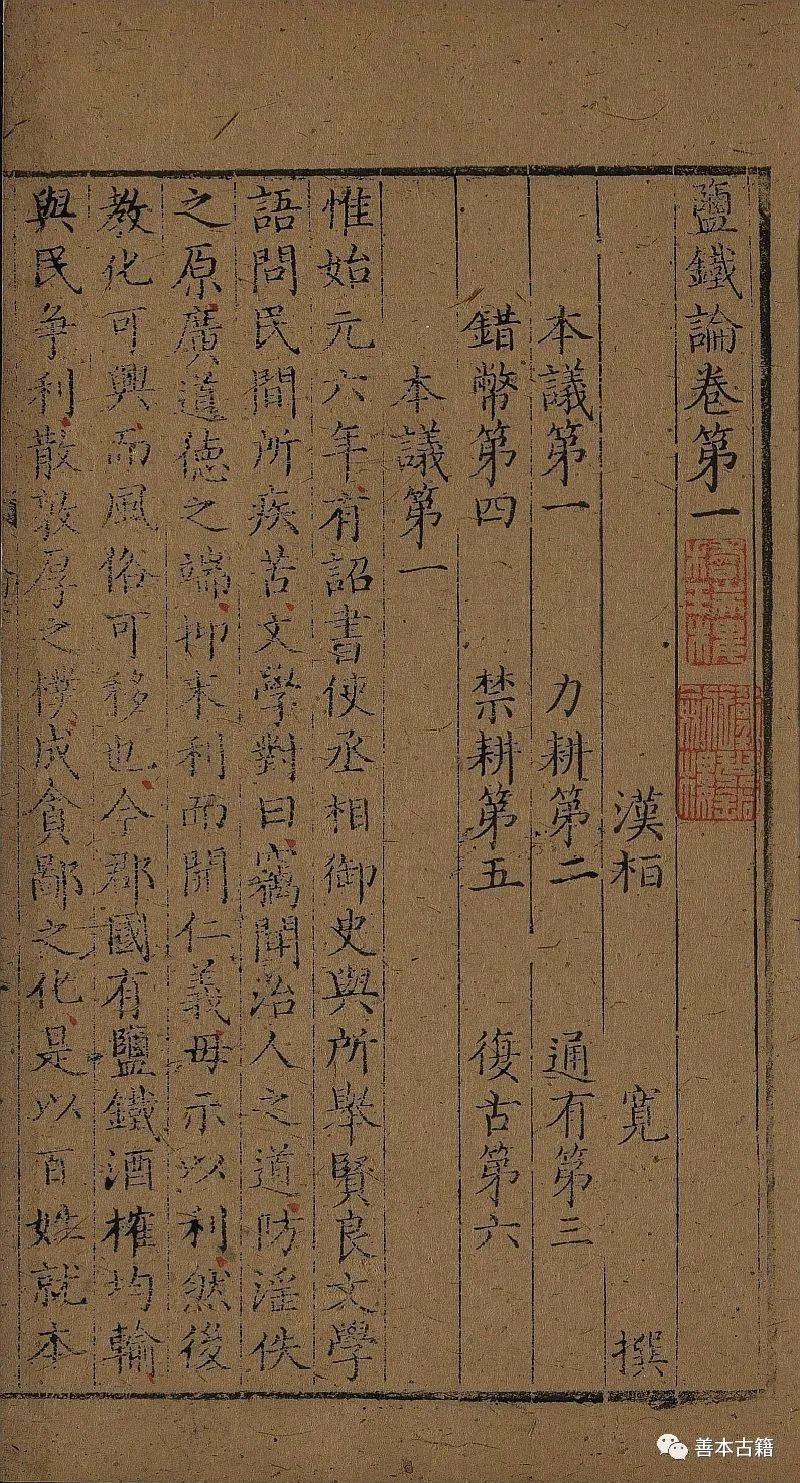 鹽鐵論卷第一
漢桓 寬 撰
本議第一 力耕第二 通有第三
錯幣第四 禁耕第五 復古第六
本議第一
惟始元六年有詔書使丞相御史與所舉賢良文學
語問民間所疾苦文學對曰竊聞治人之道防淫佚
之原廣道德之端抑末利而開仁義毋示以利然後
教化可興而風俗可移也今郡國有鹽鐵酒榷均輸
與民爭利散敦厚之樸成貪鄙之化是以百姓就本
善本古籍